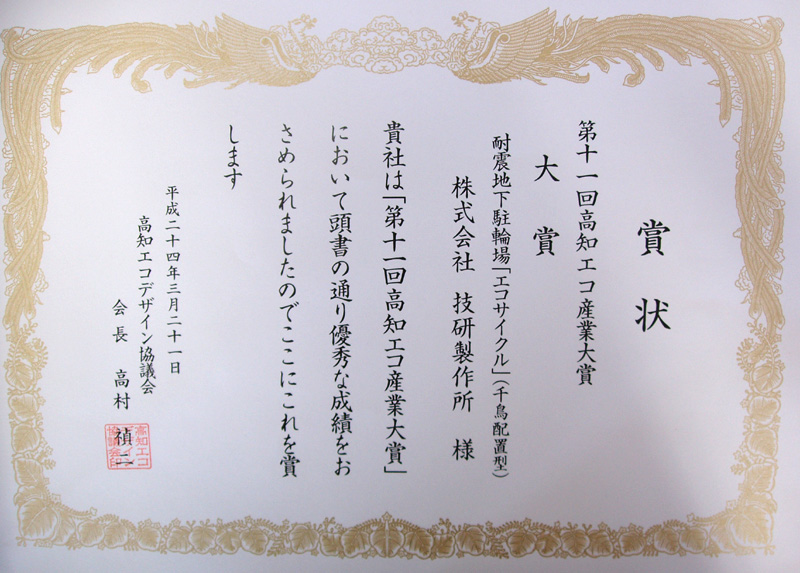 賞状
第十一回高知エコ産業大賞
大賞
耐震地下駐輪場「エコサイクル」（千鳥配置型）
株式会社 技研製作所 様
貴社は「第十一回高知エコ産業大賞」
において頭書の通り優秀な成績をお
さめられましたのでここにこれを賞
します
平成二十四年三月二十一日
高知エコデザイン協議会
会長 高村 禎二
高知エコ
デザイン
協議会印